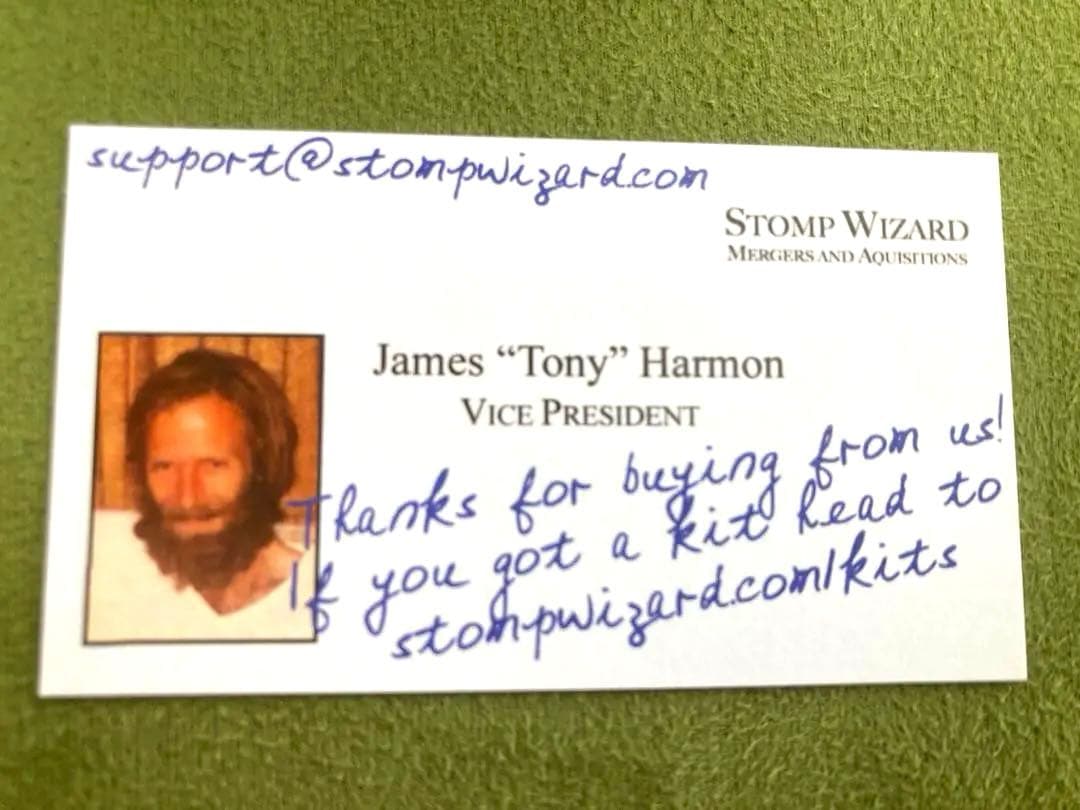 support@stompwizard.com
STOMP WIZARD
MERGERS AND AQUISITIONS
James “Tony” Harmon
VICE PRESIDENT
Thanks for buying from us!
If you got a kit head to
stompwizard.com/kits